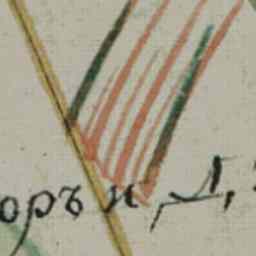 оръ и Д,